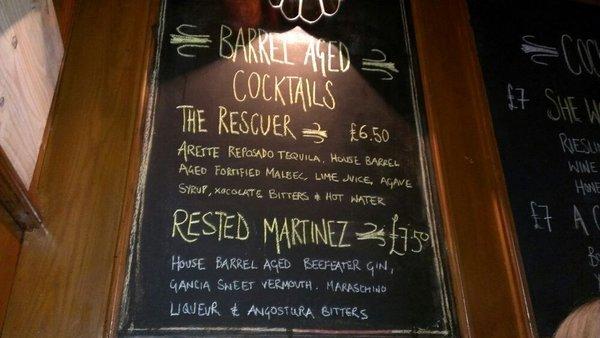 BARREL AGED
COCKTAILS
THE RESCUER £6.50
ARETTE REPOSADO TEQUILA, HOUSE BARREL
AGED FORTIFIED MALBEC, LIME JUICE, AGAVE
SYRUP, XOCOLATE BITTERS & HOT WATER
RESTED MARTINEZ £7.50
HOUSE BARREL AGED BEEFEATER GIN,
GANCIA SWEET VERMOUTH, MARASCHINO
LIQUEUR & ANGOSTURA BITTERS
£7
SHE
WINE
£7
A